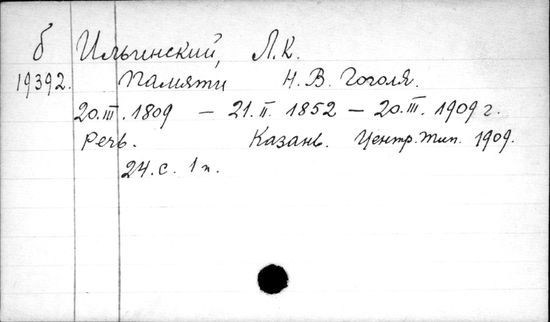 б Ильинский, Л.К.
19392. Памяти Н.В. Гоголя.
20.III.1809 – 21.II.1852 – 20.III.1909 г.
Речь. Казань. Центр. тип. 1909.
24. с. 1 п.